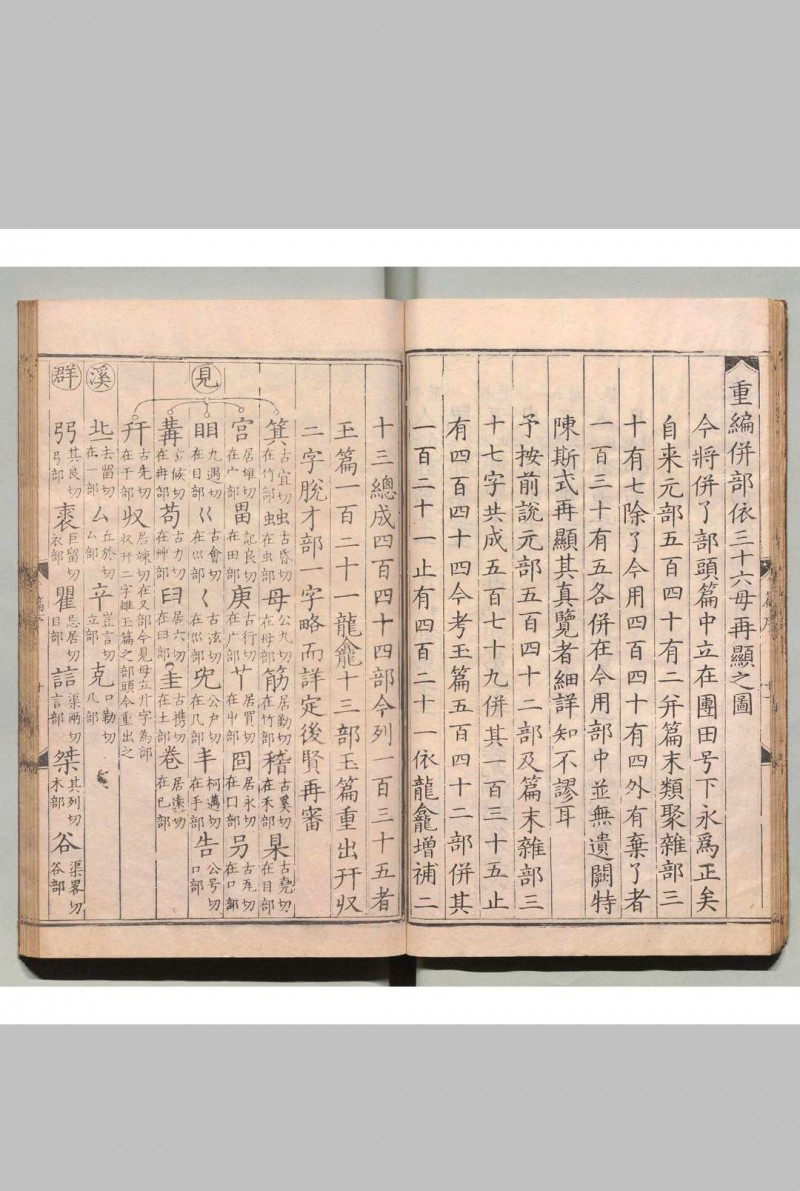 重編併部依三十六母再顯之圖
今將併了部頭篇中立在團田号下永爲正矣
自来元部五百四十有二并篇末類聚雜部三
十有七除了今用四百四十有四外有棄了者
一百三十有五各併在今用部中並無遺闕特
陳斯式再顯其真覽者細詳知不謬耳
予按前說元部五百四十二部及篇末雜部三
十七字共成五百七十九併其一百三十五止
有四百四十四今考玉篇五百四十二部併其
一百二十一止有四百二十一依龍龕增補二
十三總成四百四十四部今列一百三十五者
玉篇一百二十一龍龕十三部玉篇重出幵収
二字脫才部一字略而詳定後賢再審
見
箕古宜切在竹部䖵古昏切在虫部毋公九切在毋部筋居勤切在竹部稽古奚切在禾部杲古堯切在目部
宮居雄切在宀部畕記良切在田部庚古行切在广部𦫳居買切在中部囧居永切在口部另古瓦切在口部
䀠九遇切在目部巜古會切在巛部𡿨古泫切在巛部兜公户切在几部丯柯邁切在手部告公号切口部
冓候切在冉部苟古力切在艸部𦥑居六切在曰部圭古携切在土部卷居遠切在巳部
幵古先切在干部収居竦切在又部今見母立廾字為部収幵二字雖玉篇之部頭今重出之
溪
丠去留切在一部厶丘於切厶部䇂豈言切立部克口勒切几部
群
弜其良切弓部裘巨留切衣部瞿忌居切目部誩渠兩切言部桀其列切木部谷渠畧切谷部
篇序
十